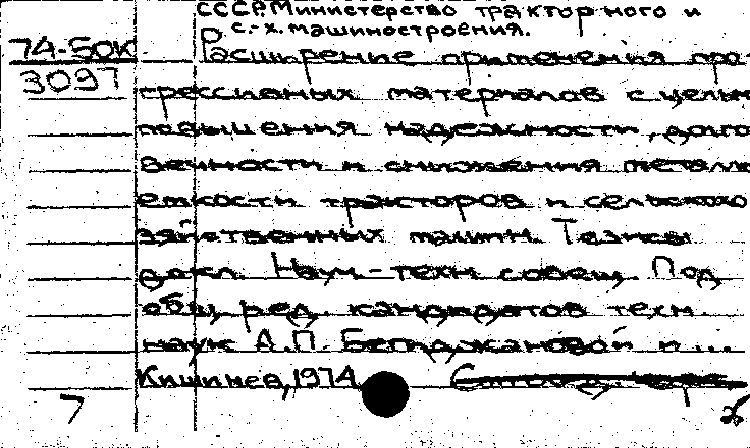 СССР. Министерство тракторного и
с.-х. машиностроения.
74-50К
3097
Расширение применения про-
грессивных материалов с целью
повышения надежности, долго-
вечности и снижения металло-
емкости тракторов и сельскохо-
зяйственных машин. Тезисы
докл. Науч.-техн. совещ. Под
общ. ред. кандидатов техн.
наук А.П. Бегларжановой и ...
Кишинев, 1974